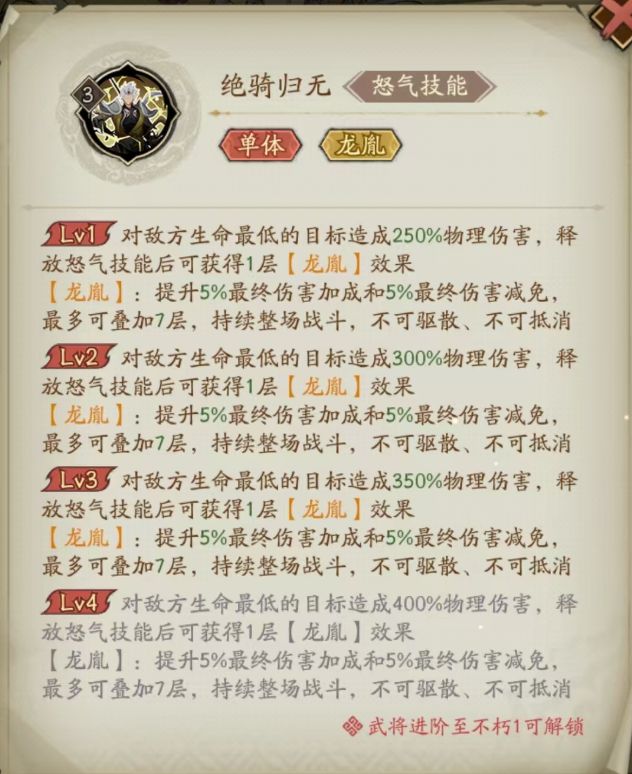 3
绝骑归无 怒气技能
单体 龙胤
Lv1 对敌方生命最低的目标造成250%物理伤害，释
放怒气技能后可获得1层【龙胤】效果
【龙胤】：提升5%最终伤害加成和5%最终伤害减免，
最多可叠加7层，持续整场战斗，不可驱散、不可抵消
Lv2 对敌方生命最低的目标造成300%物理伤害，释
放怒气技能后可获得1层【龙胤】效果
【龙胤】：提升5%最终伤害加成和5%最终伤害减免，
最多可叠加7层，持续整场战斗，不可驱散、不可抵消
Lv3 对敌方生命最低的目标造成350%物理伤害，释
放怒气技能后可获得1层【龙胤】效果
【龙胤】：提升5%最终伤害加成和5%最终伤害减免，
最多可叠加7层，持续整场战斗，不可驱散、不可抵消
Lv4 对敌方生命最低的目标造成400%物理伤害，释
放怒气技能后可获得1层【龙胤】效果
【龙胤】：提升5%最终伤害加成和5%最终伤害减免，
最多可叠加7层，持续整场战斗，不可驱散、不可抵消
武将进阶至不朽1可解锁